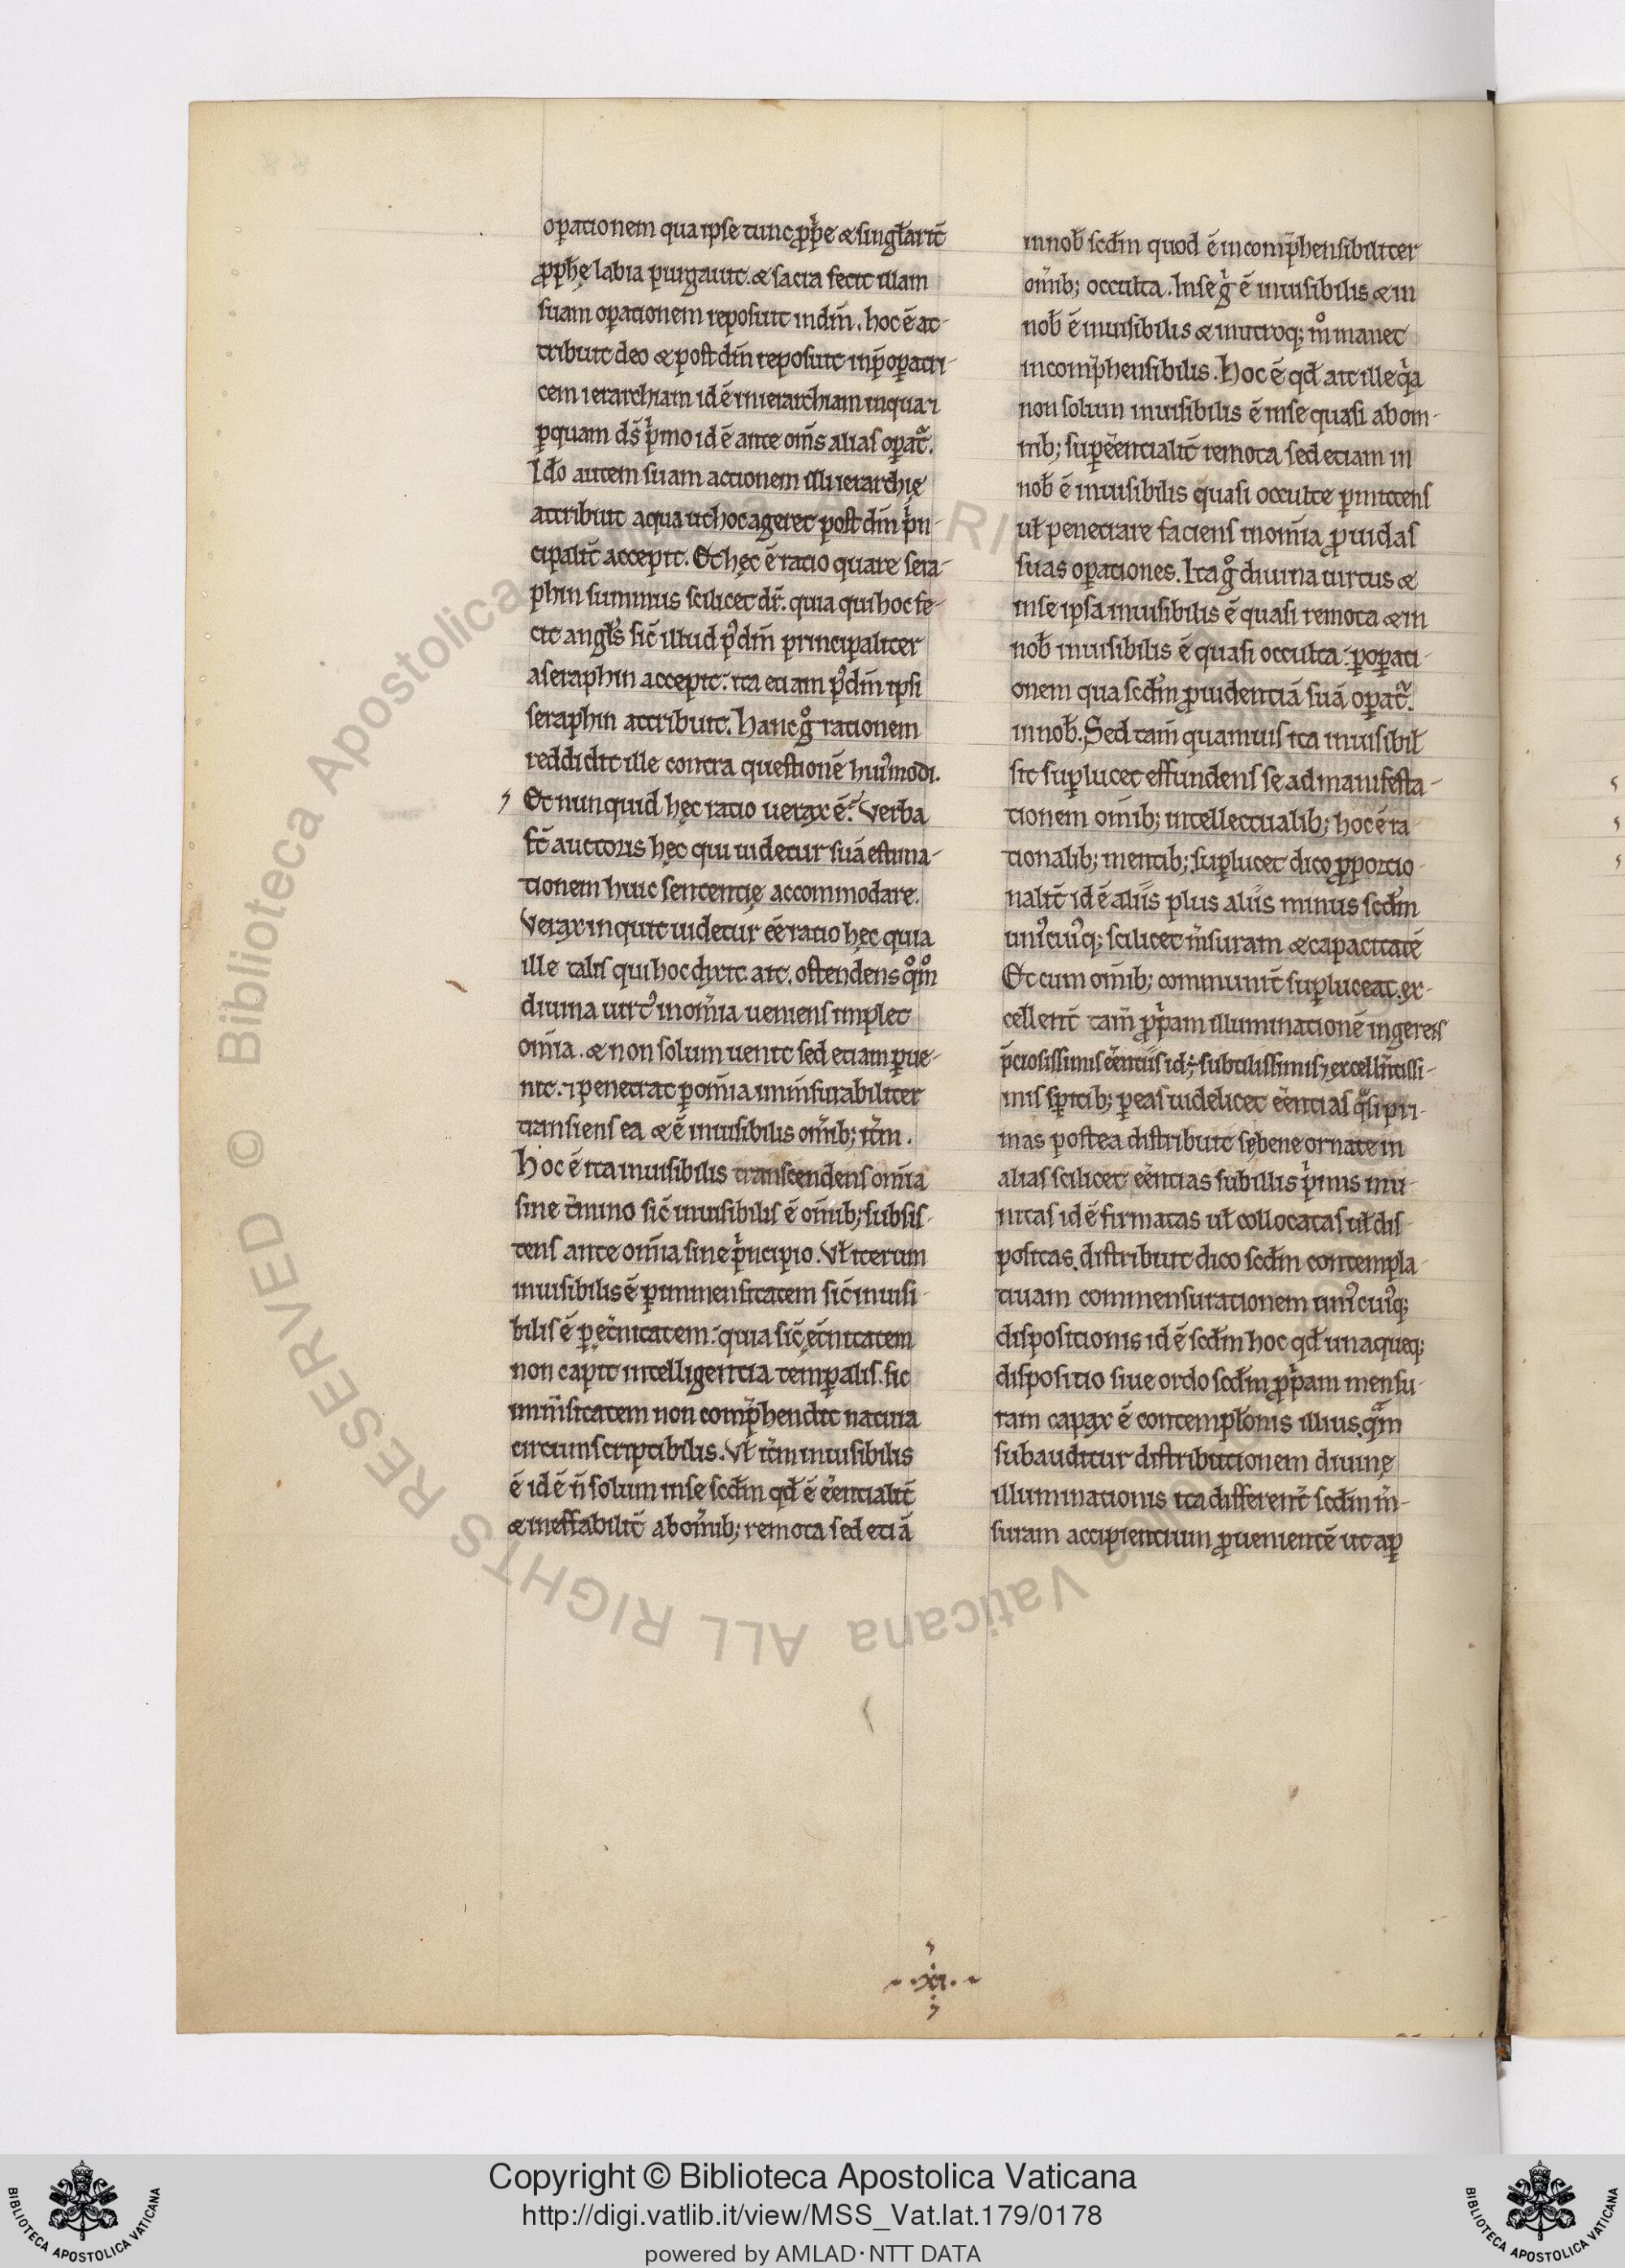 oꝑationem qua ipse tunc ꝓpͥe & sing̃larit̃
ꝓph̃ę labia purgauit. & sacra fecit illam
suam oꝑationem reposuit in dm̃. hoc ẽ at-
tribuit deo & post dm̃ reposuit in p̃oꝑatri-
cem ierarchiam id ẽ in ierarchiam in qua ⁊
ꝑ quam ds̃ pͥmo id ẽ ante om̃s alias oꝑat᷑.
Ido̵ autem suam actionem illi ierarchię
attribuit a qua ut hoc ageret post dm̃ pͥn-
cipalit̃ accepit. Et hęc ẽ ratio quare sera-
phin summus scilicet dr̃. quia qui hoc fe-
cit angl̃s sic̃ illud p᷒ dm̃ principaliter
a seraphin accepit: ita etiam p᷒ dm̃ ipsi
seraphin attribuit. Hanc gͦ rationem
reddidit ille contra questionẽ huı᷒modi.
Et nunquid hęc ratio uerax ẽ? Verba
st̃ auctoris hęc qui uidetur suã estima-
tionem huic sententię accommodare.
Verax inquit uidetur eẽ ratio hęc quia
ille talis qui hoc dixit ait. ostendens qͦmͦ
diuina uirt᷒ in om̃ia ueniens implet
om̃ia. & non solum uenit sed etiam ꝑue-
nit. ⁊ penetrat ꝑ om̃ia inm̃surabiliter
transiens ea & ẽ inuisibilis om̃ib; it̃m.
Hoc ẽ ita inuisibilis transcendens om̃ia
sine t̃mino sic̃ inuisibilis ẽ om̃ib; subsis-
tens ante om̃ia sine pͥncipio. Vł iterum
inuisibilis ẽ ꝑ inmensitatem sic̃ inuisi-
bilis ẽ ꝑ ęt̃nitatem: quia sic̃ ęt̃nitatem
non capit intelligentia temꝑalis. sic
inm̃sitatem non comp̃hendit natura
circumscriptibilis. Vł it̃m inuisibilis
ẽ id ẽ ñ solum in se scd̃m qd̃ ẽ eẽntialit̃
& ineffabilit̃ ab om̃ib; remota sed etiã
in nob̃ scd̃m quod ẽ incomp̃hensibiliter
om̃ib; occulta. In se gͥ ẽ inuisibilis & in
nob̃ ẽ inuisibilis & in utroq; mͦ manet
incomp̃hensibilis. Hoc ẽ qd̃ ait ille qͥa
non solum inuisibilis ẽ in se quasi ab om-
nib; suꝑeẽntialit̃ remota sed etiam in
nob̃ ẽ inuisibilis quasi occulte ꝑmittens
uł penetrare faciens in om̃ia ꝓuidas
suas oꝑationes. Ita gͦ diuina uirtus &
in se ipsa inuisibilis ẽ quasi remota & in
nob̃ inuisibilis ẽ quasi occulta: ꝑ oꝑati-
onem qua scd̃m ꝓuidentiã suã oꝑat᷑.
in nob̃. Sed tam̃ quamuis ita inuisibił
sit suꝑlucet effundens se ad manifesta-
tionem om̃ib; intellectualib; hoc ẽ ra-
tionalib; mentib; suꝑlucet dico ꝓportio-
nalit̃ id ẽ aliis plus aliis minus scd̃m
uni᷒cui᷒q; scilicet m̃suram & capacitatẽ
Et cum om̃ib; communit̃ suꝑluceat. ex-
cellent̃ tam̃ ꝓpͥam illuminationẽ ingerens
p̃ciosissimis eẽntiis id ÷ subtilissimis ⁊ excellñtissi-
mis spiritib; ꝑ eas uidelicet eẽntias qͣsi pri-
mas postea distribuit se bene ornate in
alias scilicet eẽntias sub illis pͥmis inu-
nitas id ẽ firmatas uł collocatas uł dis-
positas. distribuit dico scd̃m contempla-
tiuam commensurationem uni᷒cui᷒q;
dispositionis id ẽ scd̃m hoc qd̃ unaqueq;
dispositio siue ordo scd̃m ꝓpͥam mensu-
ram capax ẽ contempl̃onis illius. qͣm
subauditur distributionem diuinę
illuminationis ita different̃ scd̃m m̃-
suram accipientium ꝓuenientẽ ut aꝑ
.xi.
Copyright © Biblioteca Apostolica Vaticana
http://digi.vatlib.it/view/MSS_Vat.lat.179/0178
powered by AMLAD·NTT DATA
BIBLIOTECA APOSTOLICA VATICANA
BIBLIOTECA APOSTOLICA VATICANA
© Biblioteca Apostolica Vaticana ALL RIGHTS RESERVED